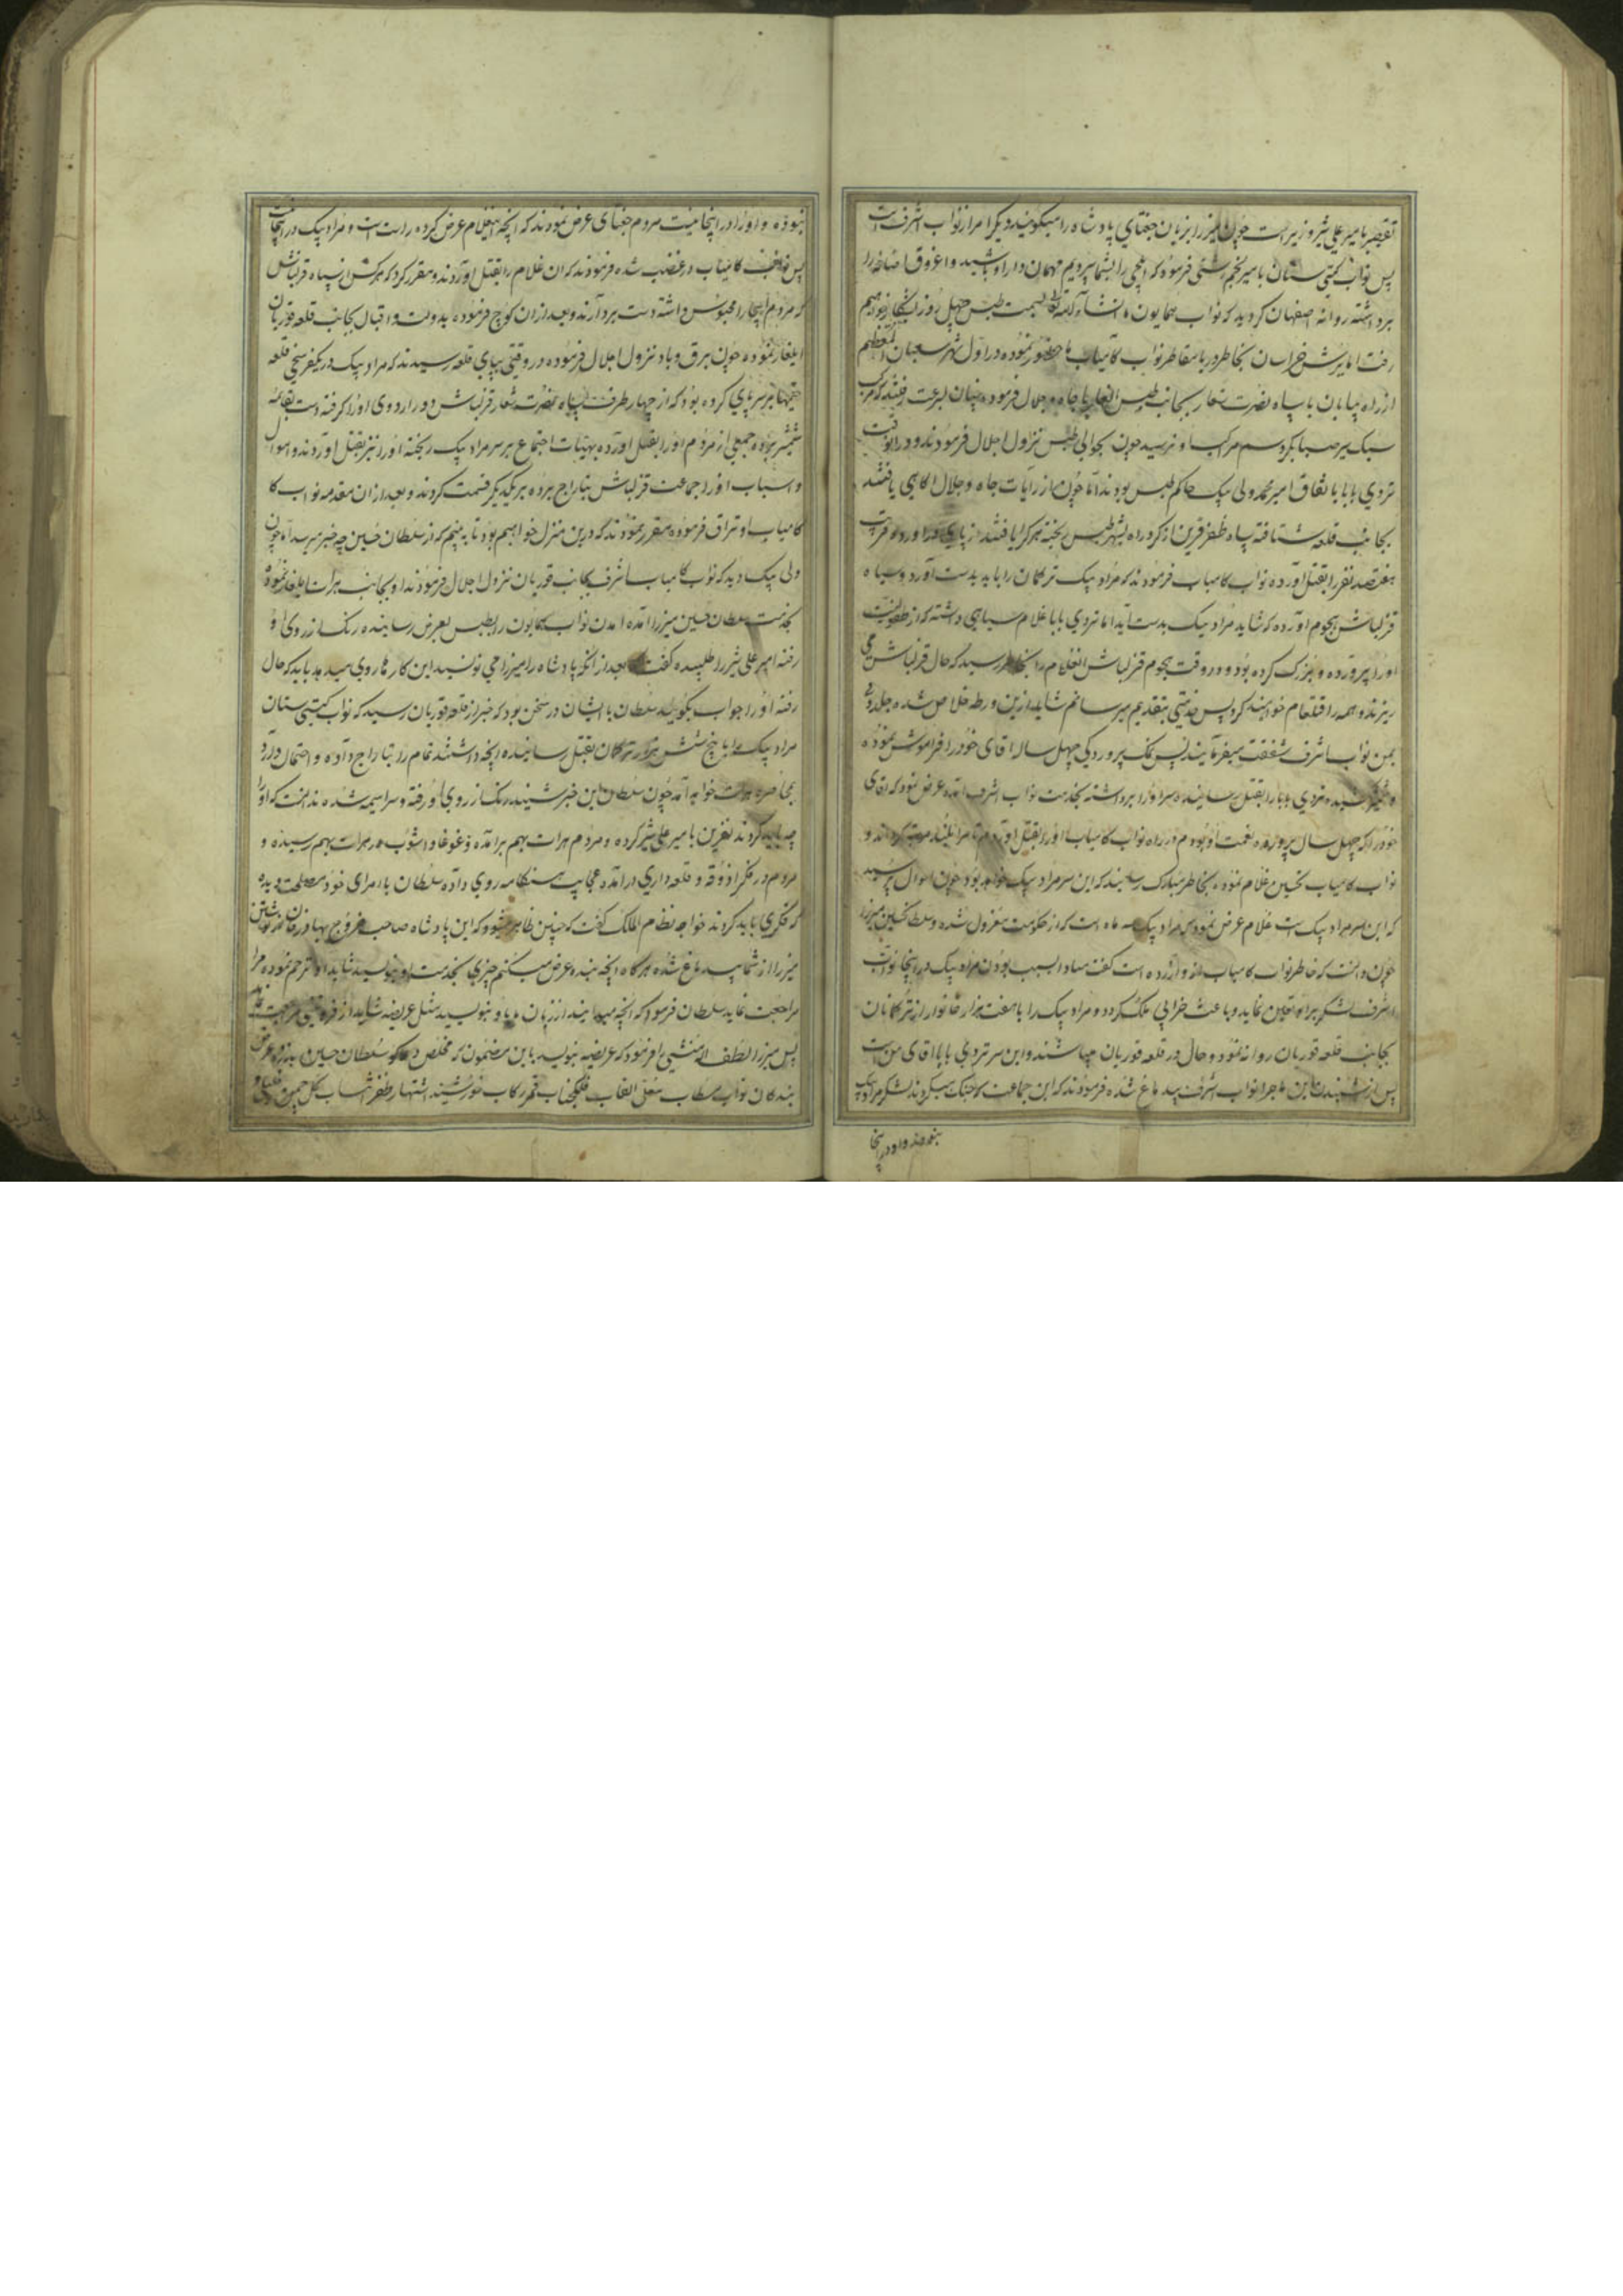 تقصیر با میر علی شیر وزیر است چون میرزا بزبان جغتای پادشاه را میگویند دیگر امر از نواب اشرف است
پس نواب گیتی ستان با میر نجم رشتی فرموده که ایلچی را بشما سپردیم مهمان دار او باشید و اغروق خاصه را
برداشته روانه اصفهان کردید که نواب همایون ما انشاء الله تعالی بسمت طبس چهل روز بشکار خواهیم
رفت اما یورش خراسان بخاطر دریا مقاطر نواب کامیاب ما خطور نموده در اول شهر شعبان المعظم
از راه بیابان با سپاه نصرت شعار بجانب طبس ایلغار با جاه و جلال فرموده چنان بسرعت رفتند که مرکب
سبک سیر صبا بگرد سم مرکب او نرسید چون بحوالی طبس نزول اجلال فرمودند و در آنوقت
تردی بابا باتفاق امیر محمد ولی بیک حاکم طبس بودند اما چون از رایات جاه و جلال آگاهی یافتند
بجانب قلعه شتافته سپاه ظفر قرین از گرد راه بشهر طبس ریخته هر که را یافتند از پای در آورده قریب
هفتصد نفر را بقتل آورده نواب کامیاب فرمودند که مراد بیک ترکمان را باید بدست آورد و سپاه
قزلباش هجوم آورده که شاید مراد بیک بدست آید اما تردی بابا غلام سیاهی داشته که از طفولیت
او را پرورده و بزرگ کرده بود و در وقت هجوم قزلباش آنغلام را بخاطر رسید که حال قزلباش می
ریزند و همه را قتلعام خواهند کرد پس خدمتی بتقدیم میرسانم شاید ازین ورطه خلاص شده جلدوی
بمن نواب اشرف شفقت میفرمایند پس نمک پروردگی چهل ساله آقای خود را فراموش نموده
و شمشیر کشیده تردی بابا را بقتل رسانیده سر او را برداشته بخدمت نواب اشرف آمده عرض نمود که آقای
خود را که چهل سال پرورده نعمت او بودم در راه نواب کامیاب او را بقتل آوردم تا مرا بلند مرتبه گردانند و
نواب کامیاب تحسین غلام نموده بخاطر مبارک رسانید که این سر مراد بیک خواهد بود چون احوال پرسید
که این سر مراد بیک است غلام عرض نمود که مراد بیک سه ماه است که از حکومت معزول شده و سلطان حسین میرزا
چون دانست که خاطر نواب کامیاب از او آزرده است گفت مبادا بسبب بودن مراد بیک در اینجا نواب
اشرف لشکر بر او تعیین نماید و باعث خرابی ملک گردد و مراد بیک را با هفت هزار خانوار از ترکمانان
بجانب قلعه قوریان روانه نمود و حال در قلعه قوریان میباشند و این سر تردی بابا آقای من است
پس از شنیدن این ماجرا نواب اشرف بیدماغ شده فرمودند که این جماعت که جنگ میکردند لشکر مراد بیک
نبودند و او در اینجا
نبوده و او را در اینجا نیست مردم جغتای عرض نمودند که آنچه این غلام عرض کرده راست است و مراد بیک در اینجا نیست
پس نواب کامیاب در غضب شده فرمودند که آن غلام را بقتل آوردند و مقرر کرد که هرکس از سپاه قزلباش
که مردم اینجا را محبوس داشته دست بردارند و بعد از آن کوچ فرموده بدولت و اقبال بجانب قلعه قوریان
ایلغار نموده چون برق و باد نزول اجلال فرموده در وقتی بپای قلعه رسیدند که مراد بیک در یکفرسخی قلعه
خیمها بر سر پای کرده بود که از چهار طرف سپاه نصرت شعار قزلباش دور اردوی او را گرفته دست بقائمه
شمشیر برده جمعی از مردم او را بقتل آورده بهیئات اجتماع بر سر مراد بیک ریخته او را نیز بقتل آوردند و اموال
و اسباب او را جماعت قزلباش بتاراج برده بر یکدیگر قسمت کردند و بعد از آن مقدمه نواب کا
کامیاب اوتراق فرموده مقرر نمودند که درین منزل خواهیم بود تا به بینم که از سلطان حسین چه خبر میرسد اما چون
ولی بیک دید که نواب کامیاب اشرف بجانب قوریان نزول اجلال فرمودند او بجانب هرات ایلغار نموده
بخدمت سلطان حسین میرزا آمده آمدن نواب همایون را بطبس بعرض رسانیده رنگ از روی او
رفته امیر علی شیر را طلبیده گفت بعد از آنکه پادشاه را میرزا می نویسید این کارها روی میدهد باید که حال
رفته او را جواب بگوئید سلطان با ایشان در سخن بود که خبر از قلعه قوریان رسید که نواب گیتی ستان
مراد بیک را با پنج شش هزار ترکمان بقتل رسانیده آنچه داشتند تمام را بتاراج داده و احتمال دارد
بمحاصره هرات خواهد آمد چون سلطان این خبر شنید رنگ از روی او رفته و سراسیمه شده ندانست که او را
چه باید کردند نفرین با میر علی شیر کرده و مردم هرات بهم برآمده و غوغا و آشوب در هرات بهم رسیده و
مردم در فکر آذوقه و قلعه داری در آمده عجایب هنگامه روی داده سلطان با امرای خود مصلحت دیده
که فکری باید کردند خواجه نظام الملک گفت که چنین ظاهر میشود که این پادشاه صاحب خروج بهادرخان از نوشتن
میرزا از شما بیدماغ شده هرگاه آنچه بنده عرض میکنم چیزی بخدمت او بنویسید شاید او ترحم نموده مرا
مراجعت نماید سلطان فرمود که آنچه میدانید از زبان ما باو بنویسید مثل عریضه شاید از فروتنی مراجعت نماید
پس میرزا لطف الله منشی را فرمود که عریضه بنویسد باین مضمون که مخلص دعاگو سلطان حسین بذروه عرض
بندگان نواب مستطاب معلی القاب فلکجناب قمر رکاب خورشید اشتهار ظفر انتساب گل چمن